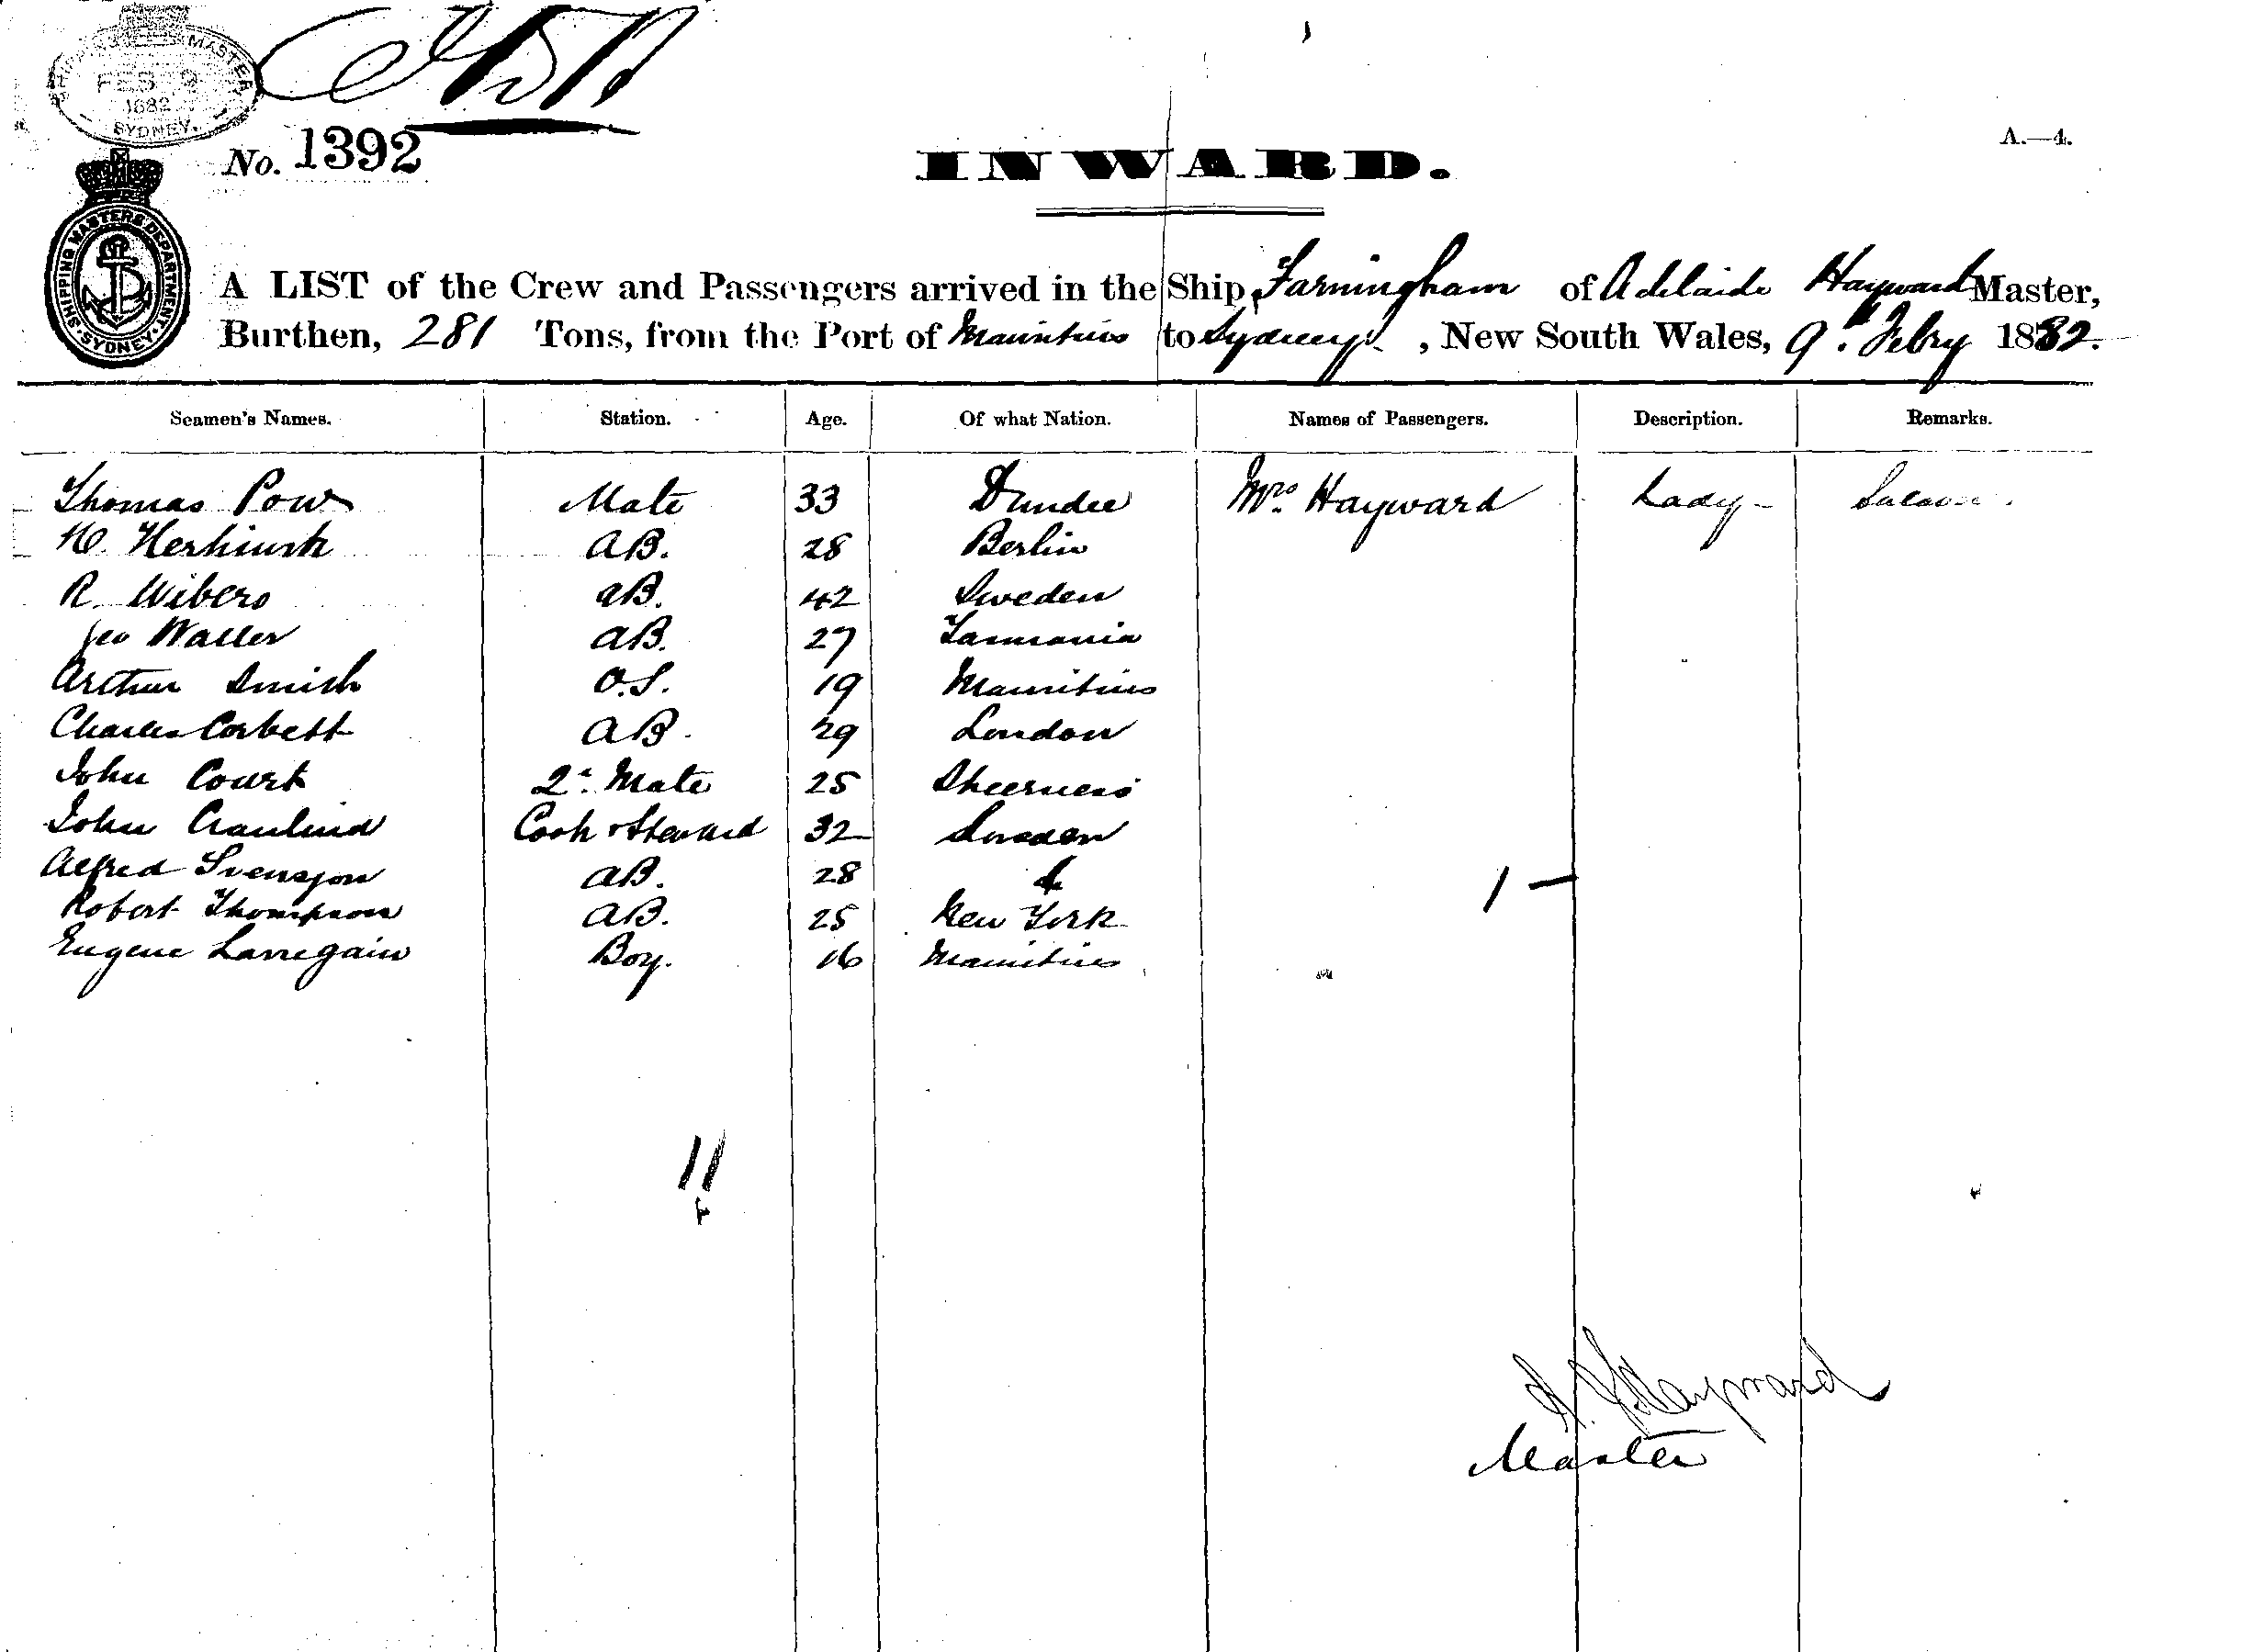 SHIPPING MASTER
FEB 9
1882
SYDNEY.
No. 1392
INWARD.
A.—4.
SHIPPING MASTERS DEPARTMENT. SYDNEY.
A LIST of the Crew and Passengers arrived in the Ship Farningham of Adelaide Hayward Master,
Burthen, 281 Tons, from the Port of Mauritius to Sydney, New South Wales, 9th Febry 1882.
Seamen's Names. Station. Age. Of what Nation. Names of Passengers. Description. Remarks.
Thomas Pow Mate 33 Dundee Mrs. Hayward Lady Saloon.
H. AB. 28 Berlin
R. Wibero AB. 42 Sweden
Geo Waller AB. 27 Tasmania
Arthur Smith O.S. 19 Mauritius
Charles Corbett AB. 29 London
John Court 2d. Mate 25 Sheerness
John Cook & Steward 32 Sweden
Alfred Svensson AB. 28
Robert Thompson AB. 25 New York
Eugene Larregain Boy. 16 Mauritius
1 —
11
Hayward
Master